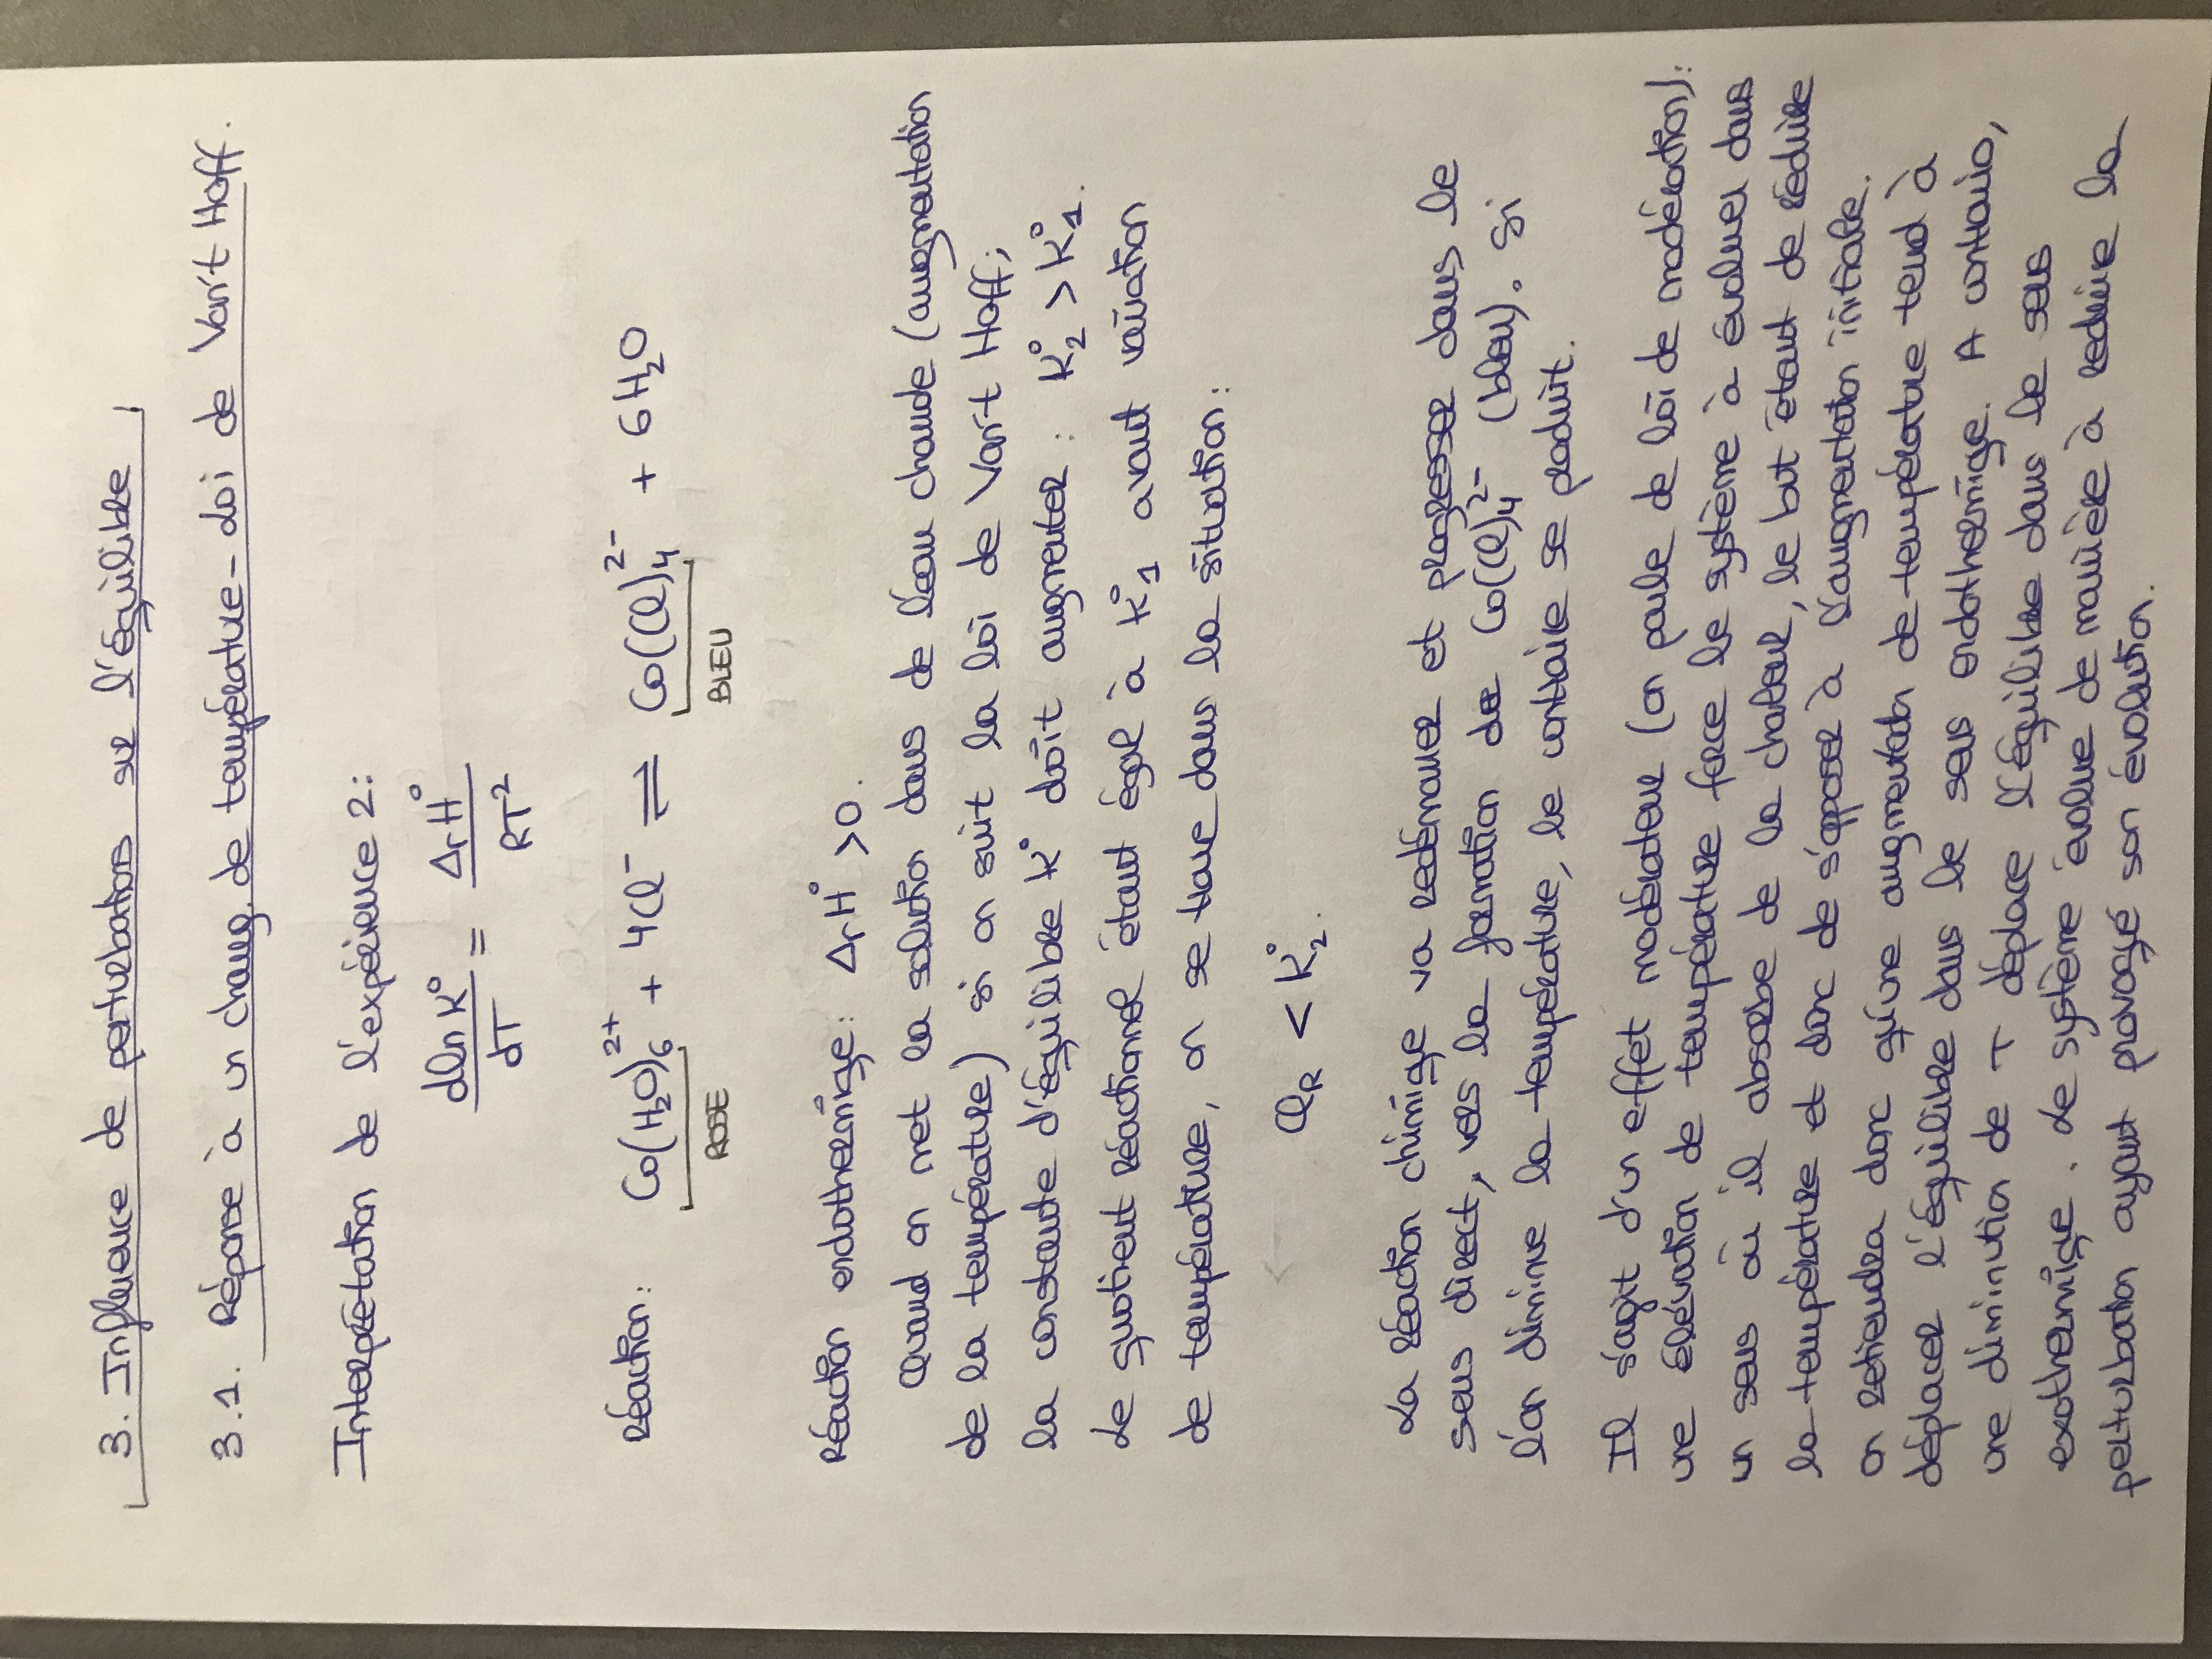 3. Influence de perturbations sur l'équilibre
3.1. Réponse à un chang. de température - Loi de Van't Hoff.
Interprétation de l'expérience 2:
dln K° / dT = ΔrH° / RT²
Réaction: Co(H₂O)₆²⁺ + 4Cl⁻ ⇌ Co(Cl)₄²⁻ + 6H₂O
ROSE BLEU
Réaction endothermique: ΔrH° >0.
Quand on met la solution dans de l'eau chaude (augmentation
de la température) si on suit la loi de Van't Hoff;
la constante d'équilibre K° doit augmenter: K₂° > K₁°.
Le quotient réactionnel étant égal à K₁° avant variation
de température, on se trouve dans la situation:
QR < K₂°.
La réaction chimique va redémarrer et progresser dans le
sens direct, vers la formation de Co(Cl)₄²⁻ (bleu). Si
l'on diminue la température, le contraire se produit.
Il s'agit d'un effet modérateur (on parle de loi de modération):
une élévation de température force le système à évoluer dans
un sens où il absorbe de la chaleur, le but étant de réduire
la température et donc de s'opposer à l'augmentation initiale.
On retiendra donc qu'une augmentation de température tend à
déplacer l'équilibre dans le sens endothermique. A contrario,
une diminution de T déplace l'équilibre dans le sens
exothermique. Le système évolue de manière à réduire la
perturbation ayant provoqué son évolution.